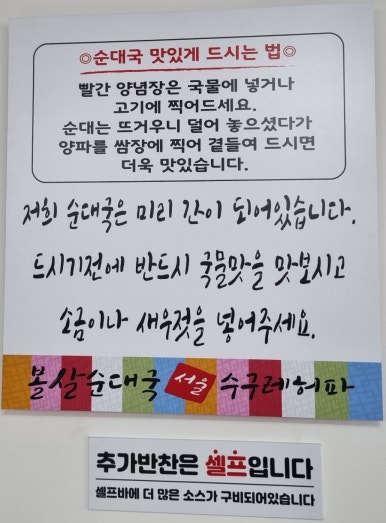 ◎순대국 맛있게 드시는 법◎
빨간 양념장은 국물에 넣거나
고기에 찍어드세요.
순대는 뜨거우니 덜어 놓으셨다가
양파를 쌈장에 찍어 곁들여 드시면
더욱 맛있습니다.
저희 순대국은 미리 간이 되어있습니다.
드시기전에 반드시 국물맛을 맛보시고
소금이나 새우젓을 넣어주세요.
볼살순대국 서울 수구레허파
추가반찬은 셀프입니다
셀프바에 더 많은 소스가 구비되어있습니다